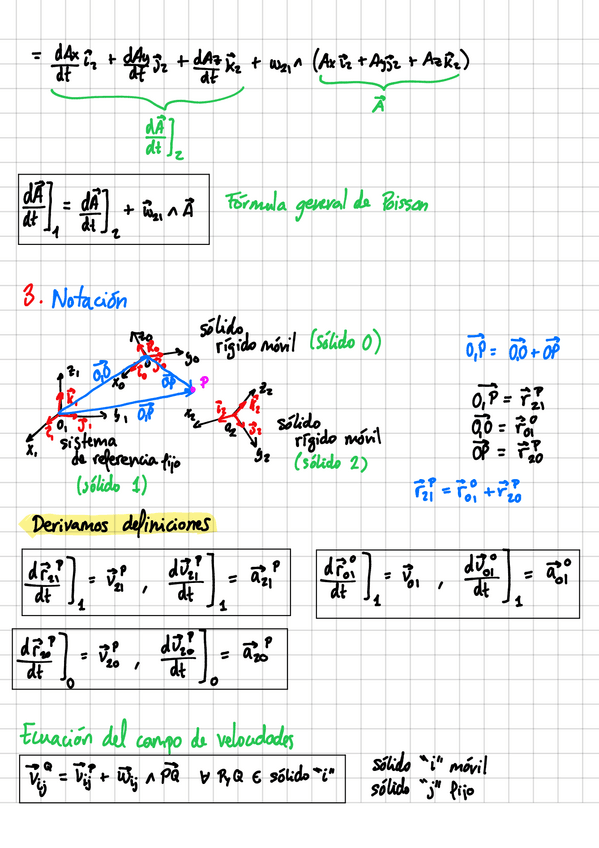 = dAx/dt i⃗₂ + dAy/dt j⃗₂ + dAz/dt k⃗₂ + ω₂₁ ∧ (Ax i⃗₂ + Ay j⃗₂ + Az k⃗₂)
dA⃗/dt]₂ A⃗
dA⃗/dt]₁ = dA⃗/dt]₂ + ω⃗₂₁ ∧ A⃗ Fórmula general de Poisson
3. Notación
z₀ k⃗₀ y₀ j⃗₀ x₀ i⃗₀ O
sólido
rígido móvil (sólido 0)
z₁ k⃗₁ O₁ y₁ j⃗₁ x₁ i⃗₁
O₁O⃗ OP⃗ P O₁P⃗
sistema
de referencia fijo
(sólido 1)
z₂ k⃗₂ x₂ i⃗₂ O₂ j⃗₂ y₂
sólido
rígido móvil
(sólido 2)
O₁P⃗ = O₁O⃗ + OP⃗
O₁P⃗ = r⃗₂₁ᴾ
O₁O⃗ = r⃗₀₁⁰
OP⃗ = r⃗₂₀ᴾ
r⃗₂₁ᴾ = r⃗₀₁⁰ + r⃗₂₀ᴾ
Derivamos definiciones
dr⃗₂₁ᴾ/dt]₁ = v⃗₂₁ᴾ , dv⃗₂₁ᴾ/dt]₁ = a⃗₂₁ᴾ
dr⃗₀₁⁰/dt]₁ = v⃗₀₁ , dv⃗₀₁⁰/dt]₁ = a⃗₀₁⁰
dr⃗₂₀ᴾ/dt]₀ = v⃗₂₀ᴾ , dv⃗₂₀ᴾ/dt]₀ = a⃗₂₀ᴾ
Ecuación del campo de velocidades
v⃗ᵢⱼ^Q = v⃗ᵢⱼᴾ + ω⃗ᵢⱼ ∧ PQ⃗ ∀ P,Q ∈ sólido "i"
sólido "i" móvil
sólido "j" fijo